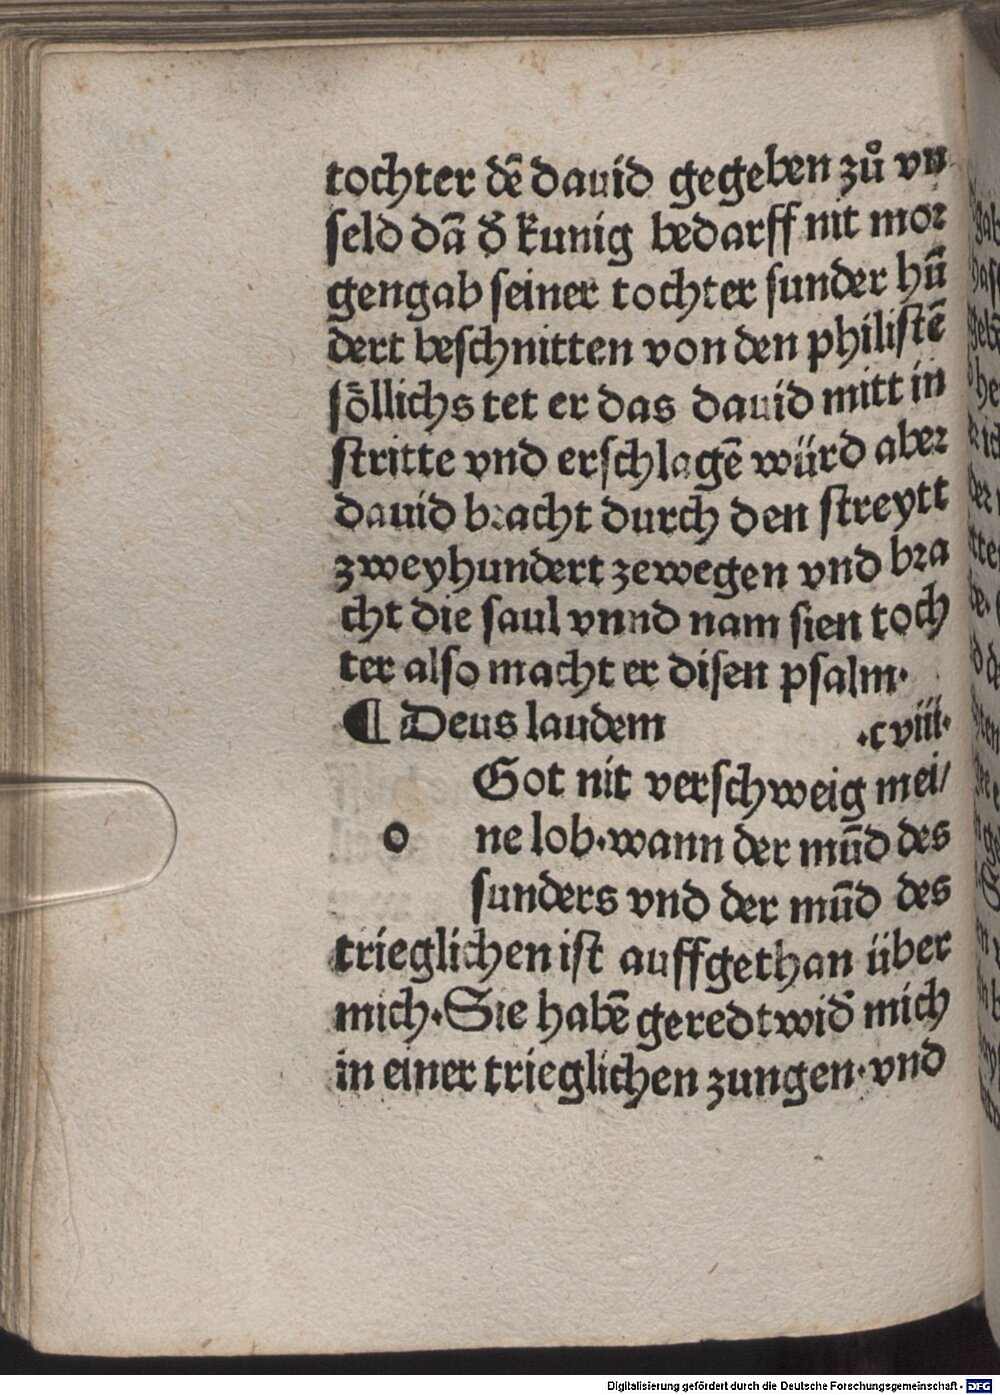 tochter dē dauid gegeben zů vn
seld dā d̄ kunig bedarff nit mor
gengab seiner tochter sunder hū
dert beschnitten von den philistē
soͤllichs tet er das dauid mitt in
stritte vnd erschlagē wurd aber
dauid bracht durch den streytt
zweyhundert zewegen vnd bra
cht die saul vnnd nam sien toch
ter also macht er disen psalm·
¶ Deus laudem ·cviii·
Got nit verschweig mei/
o ne lob·wann der mūd des
sunders vnd der mūd des
trieglichen ist auffgethan über
mich·Sie habē geredt wid̄ mich
in einer trieglichen zungen·vnd
Digitalisierung gefördert durch die Deutsche Forschungsgemeinschaft - DFG